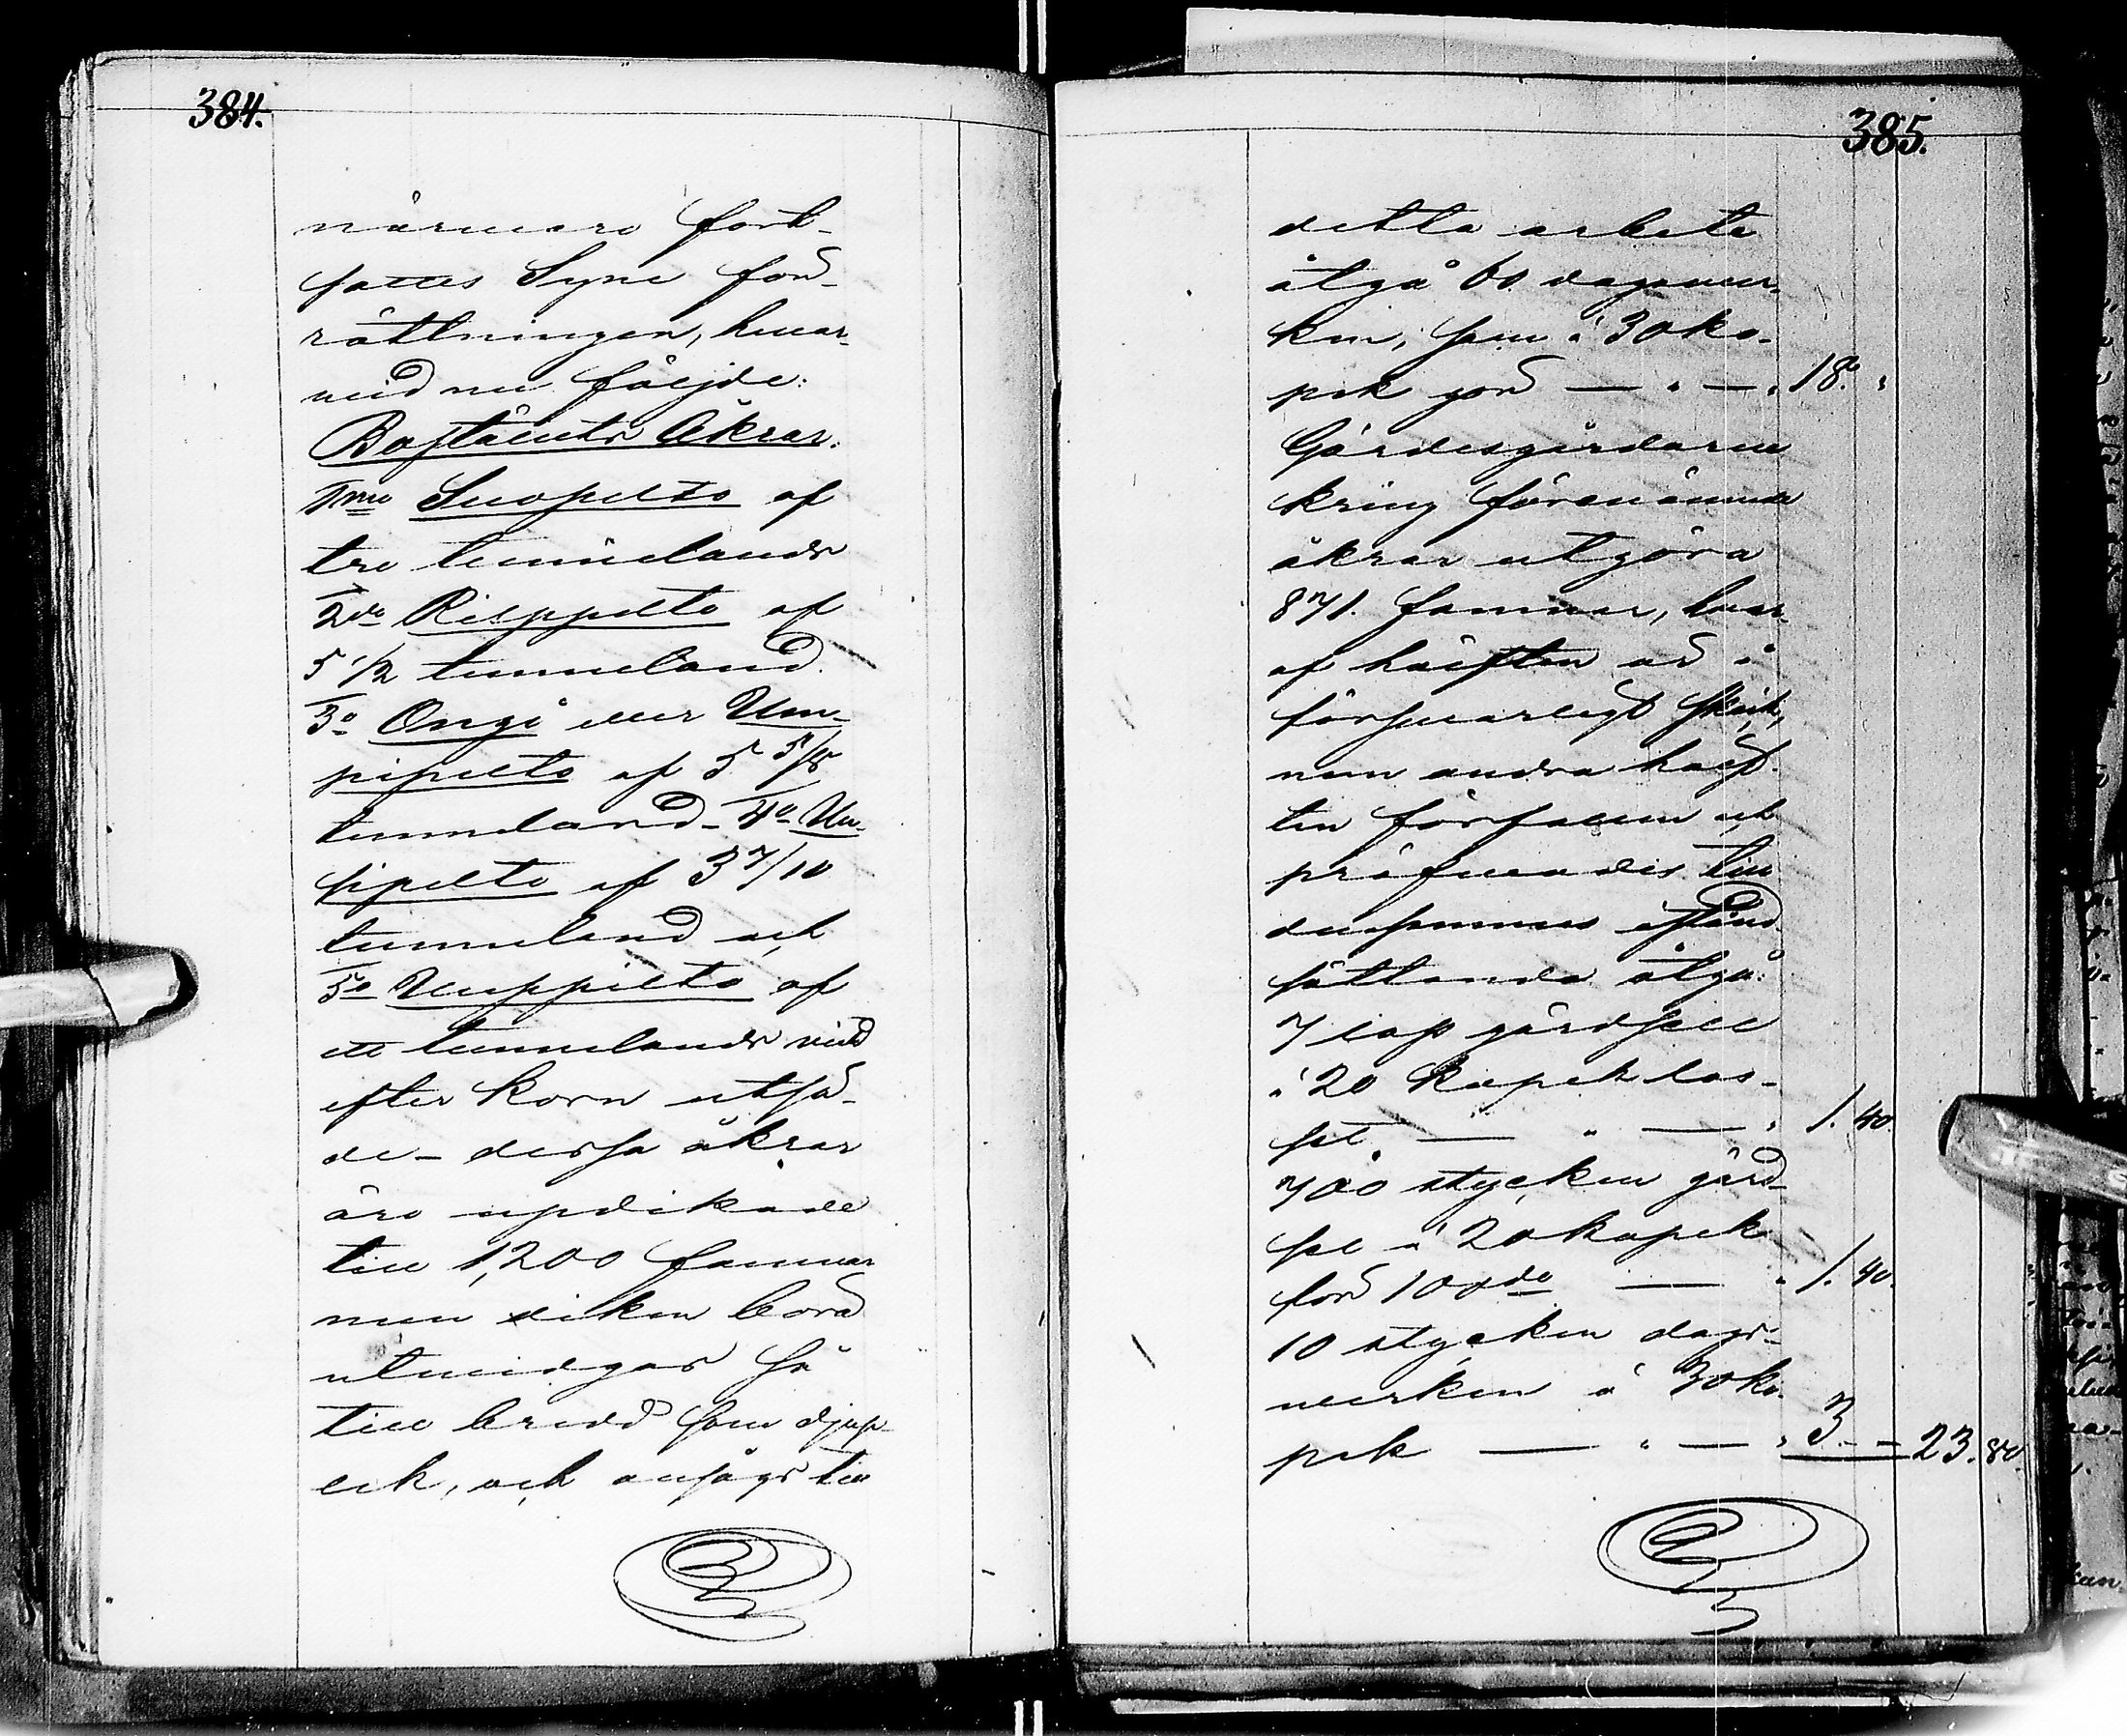 384.
närmare fort-
sattes Syne för-
rättningen, hvar-
vid nu följde:
Boställets Åkrar.
1mo Suopelto af
tre tunnelands
2do Risppelto af
5 1/2 tunneland.
3o Ongi eller Um-
pipelto af 5 5/8
tunneland - 4o Uu-
sipelto af 3 7/10
tunneland och
5o Uuppelto af
ett tunnelands vidd
efter korn utsä-
de - dessa åkrar
äro updikade
till 1,200 famnar
men diken borde
utvidgas så
till bredd som djup-
lek, och ansågs till
385.
detta arbete
åtgå 60 dagsver-
ken, som á 30 ko-
pek gör — " — " 18. "
Gärdesgårdarne
kring förenämnde
åkrar utgöra
871. famnar, hvar-
af hälften är i
försvarligt skick,
men andra hälf-
ten förfallen och
pröfvades till
densammas istånd-
sättande åtgå:
7 lass gärdsel
á 20 kopek las-
set — " — " 1. 40.
700 stycken gärd-
sel á 20 kopek
för 100 do — " 1. 40.
10 stycken dags-
verken á 30 ko-
pek — " — " 3. - 23. 80.